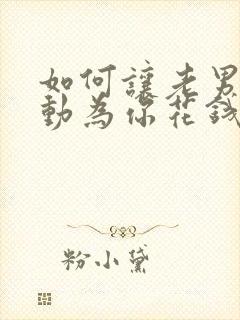 如何讓老男
動為你花錢
粉小黛